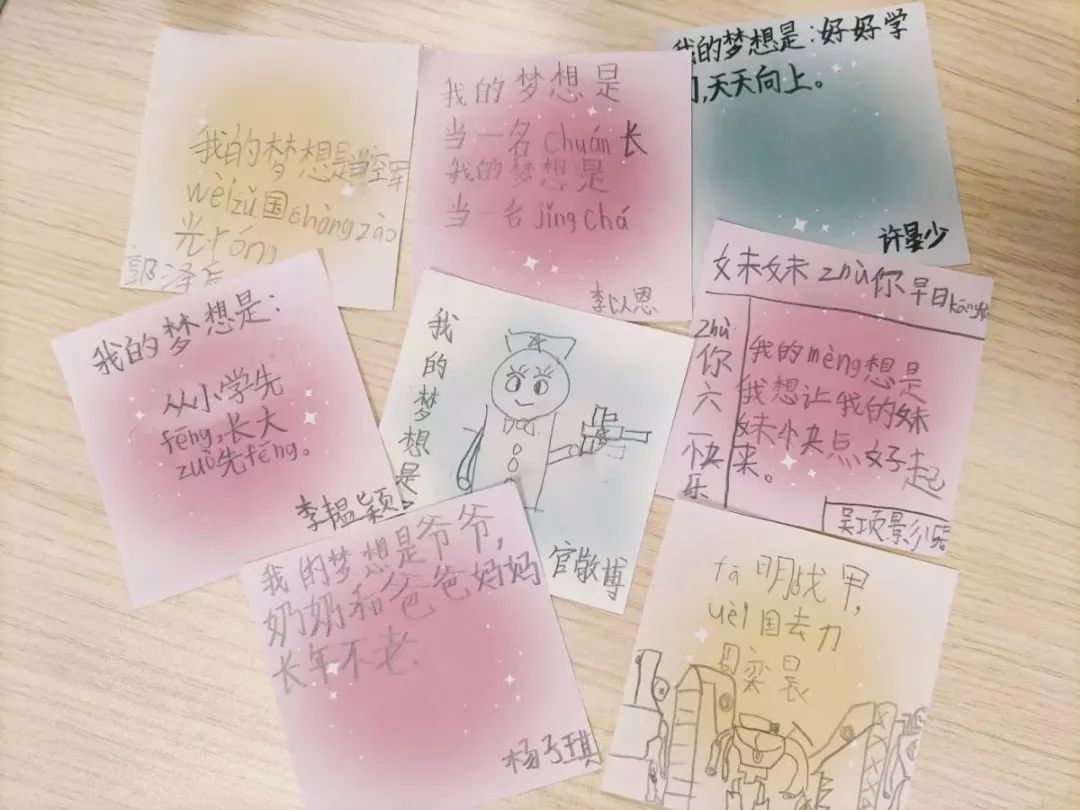 我的梦想是当空军
wèizǔ国chuàngzào
光róng
郭泽
我的梦想是
当一名chuán长
我的梦想是
当一名jǐngchá
李以恩
我的梦想是:好好学
习,天天向上。
许晏少
我的梦想是:
从小学先
fēng,长大
zuò先fēng。
李韫颖
我的梦想是
官敬博
妹妹zhù你早日kāng
zhù你六一快乐
我的mèng想是
我想让我的妹
妹快点好起
来。
吴项影
我的梦想是爷爷,
奶奶和爸爸妈妈
长年不老
杨子琪
fā明战甲,
wèi国去力
周栾晨